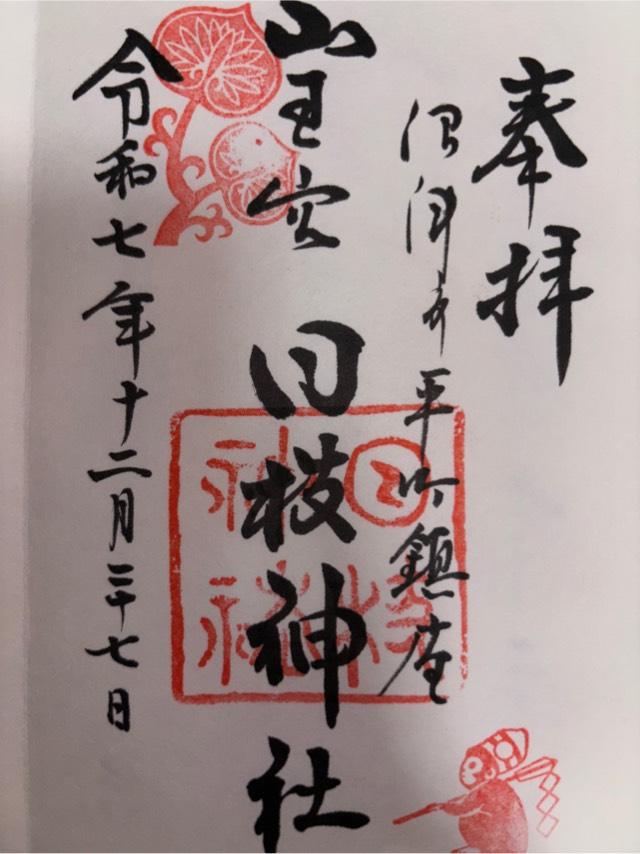 奉拝
沼津市平町鎮座
山王宮 日枝神社
令和七年十二月二十七日
日枝
神社